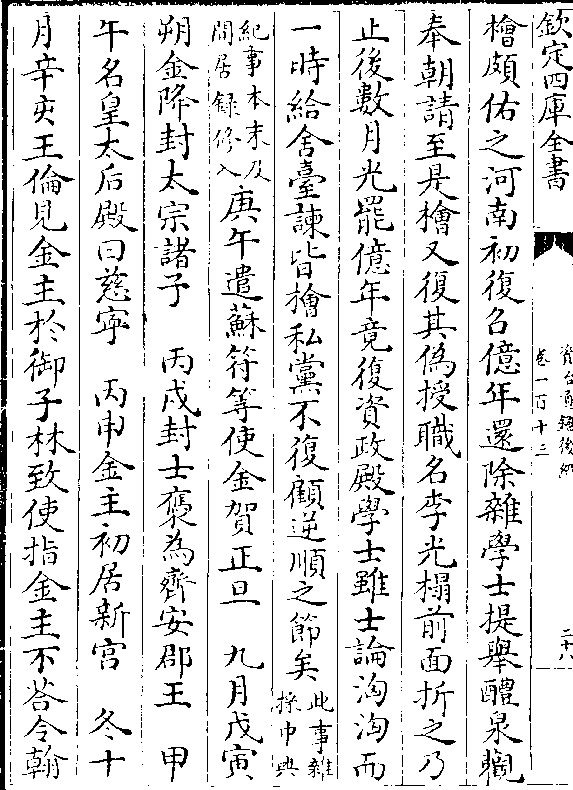 欽定四庫全書
資治通鑑後編
卷一百十三
二十八
檜頗佑之河南初復召億年還除雜學士提舉醴泉觀
奉朝請至是檜又復其偽授職名李光榻前面折之乃
止後數月光罷億年竟復資政殿學士雖士論洶洶而
一時給舍臺諫皆檜私黨不復顧逆順之節矣此事雜採中興
紀事本末及閒居録修入庚午遣蘇符等使金賀正旦 九月戊寅
朔金降封太宗諸子 丙戌封士㒟為齊安郡王 甲
午名皇太后殿曰慈寧 丙申金主初居新宮 冬十
月辛亥王倫見金主於御子林致使指金主不荅令翰